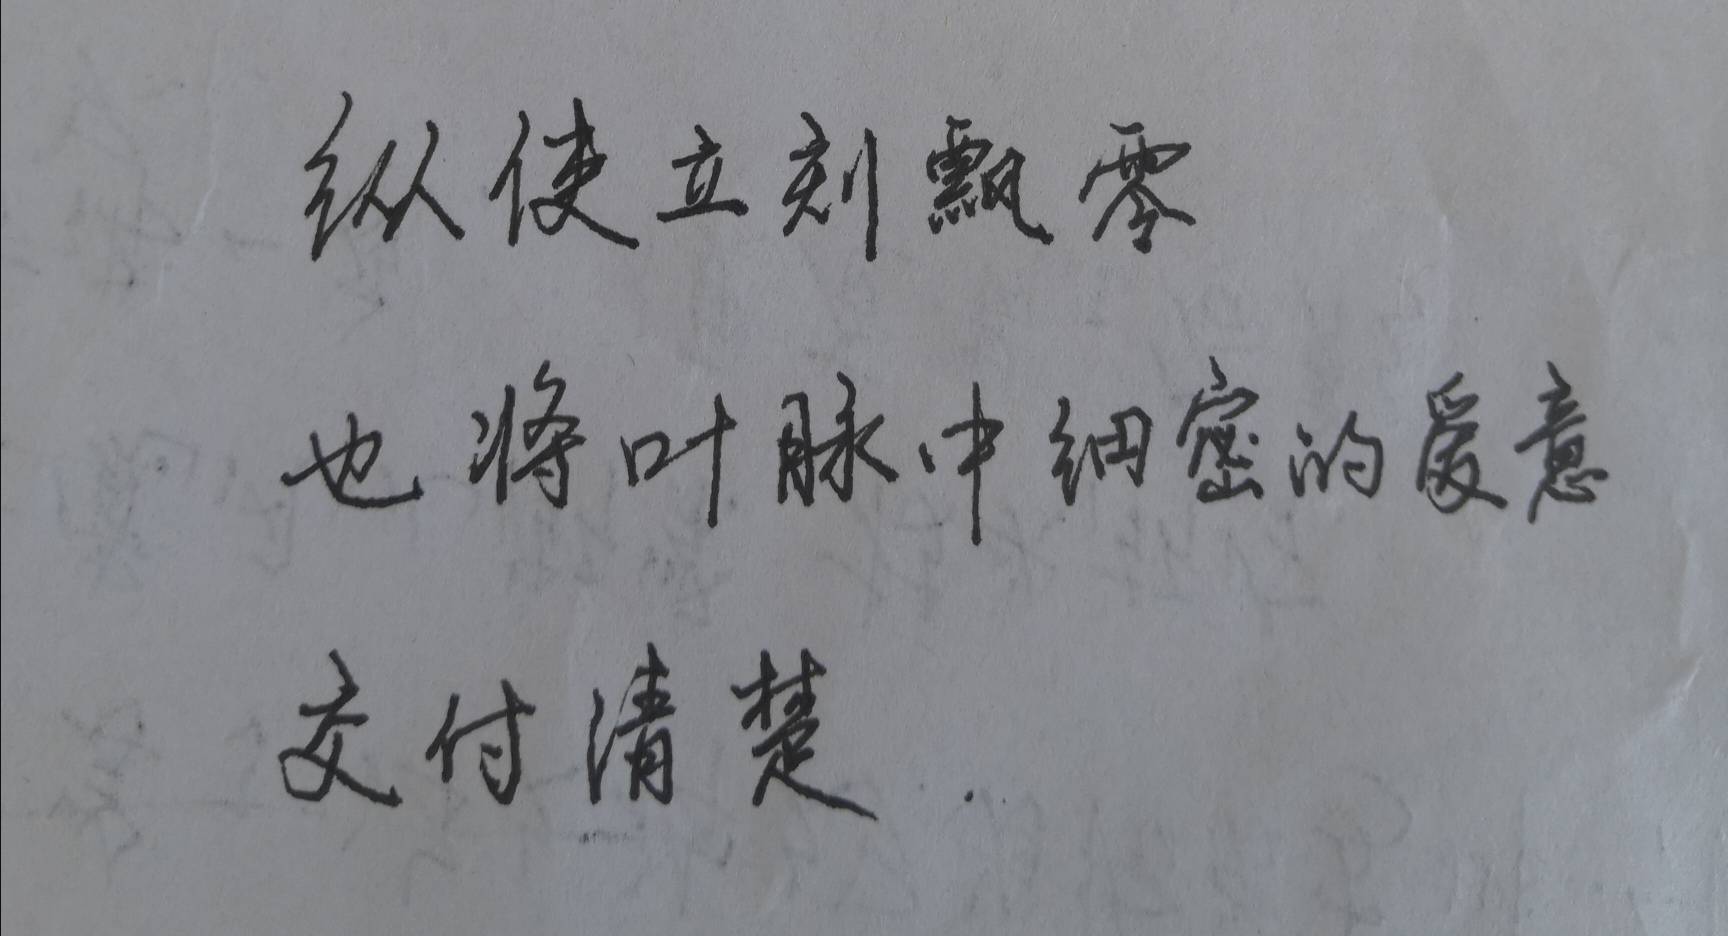 纵使立刻飘零
也将叶脉中细密的爱意
交付清楚.